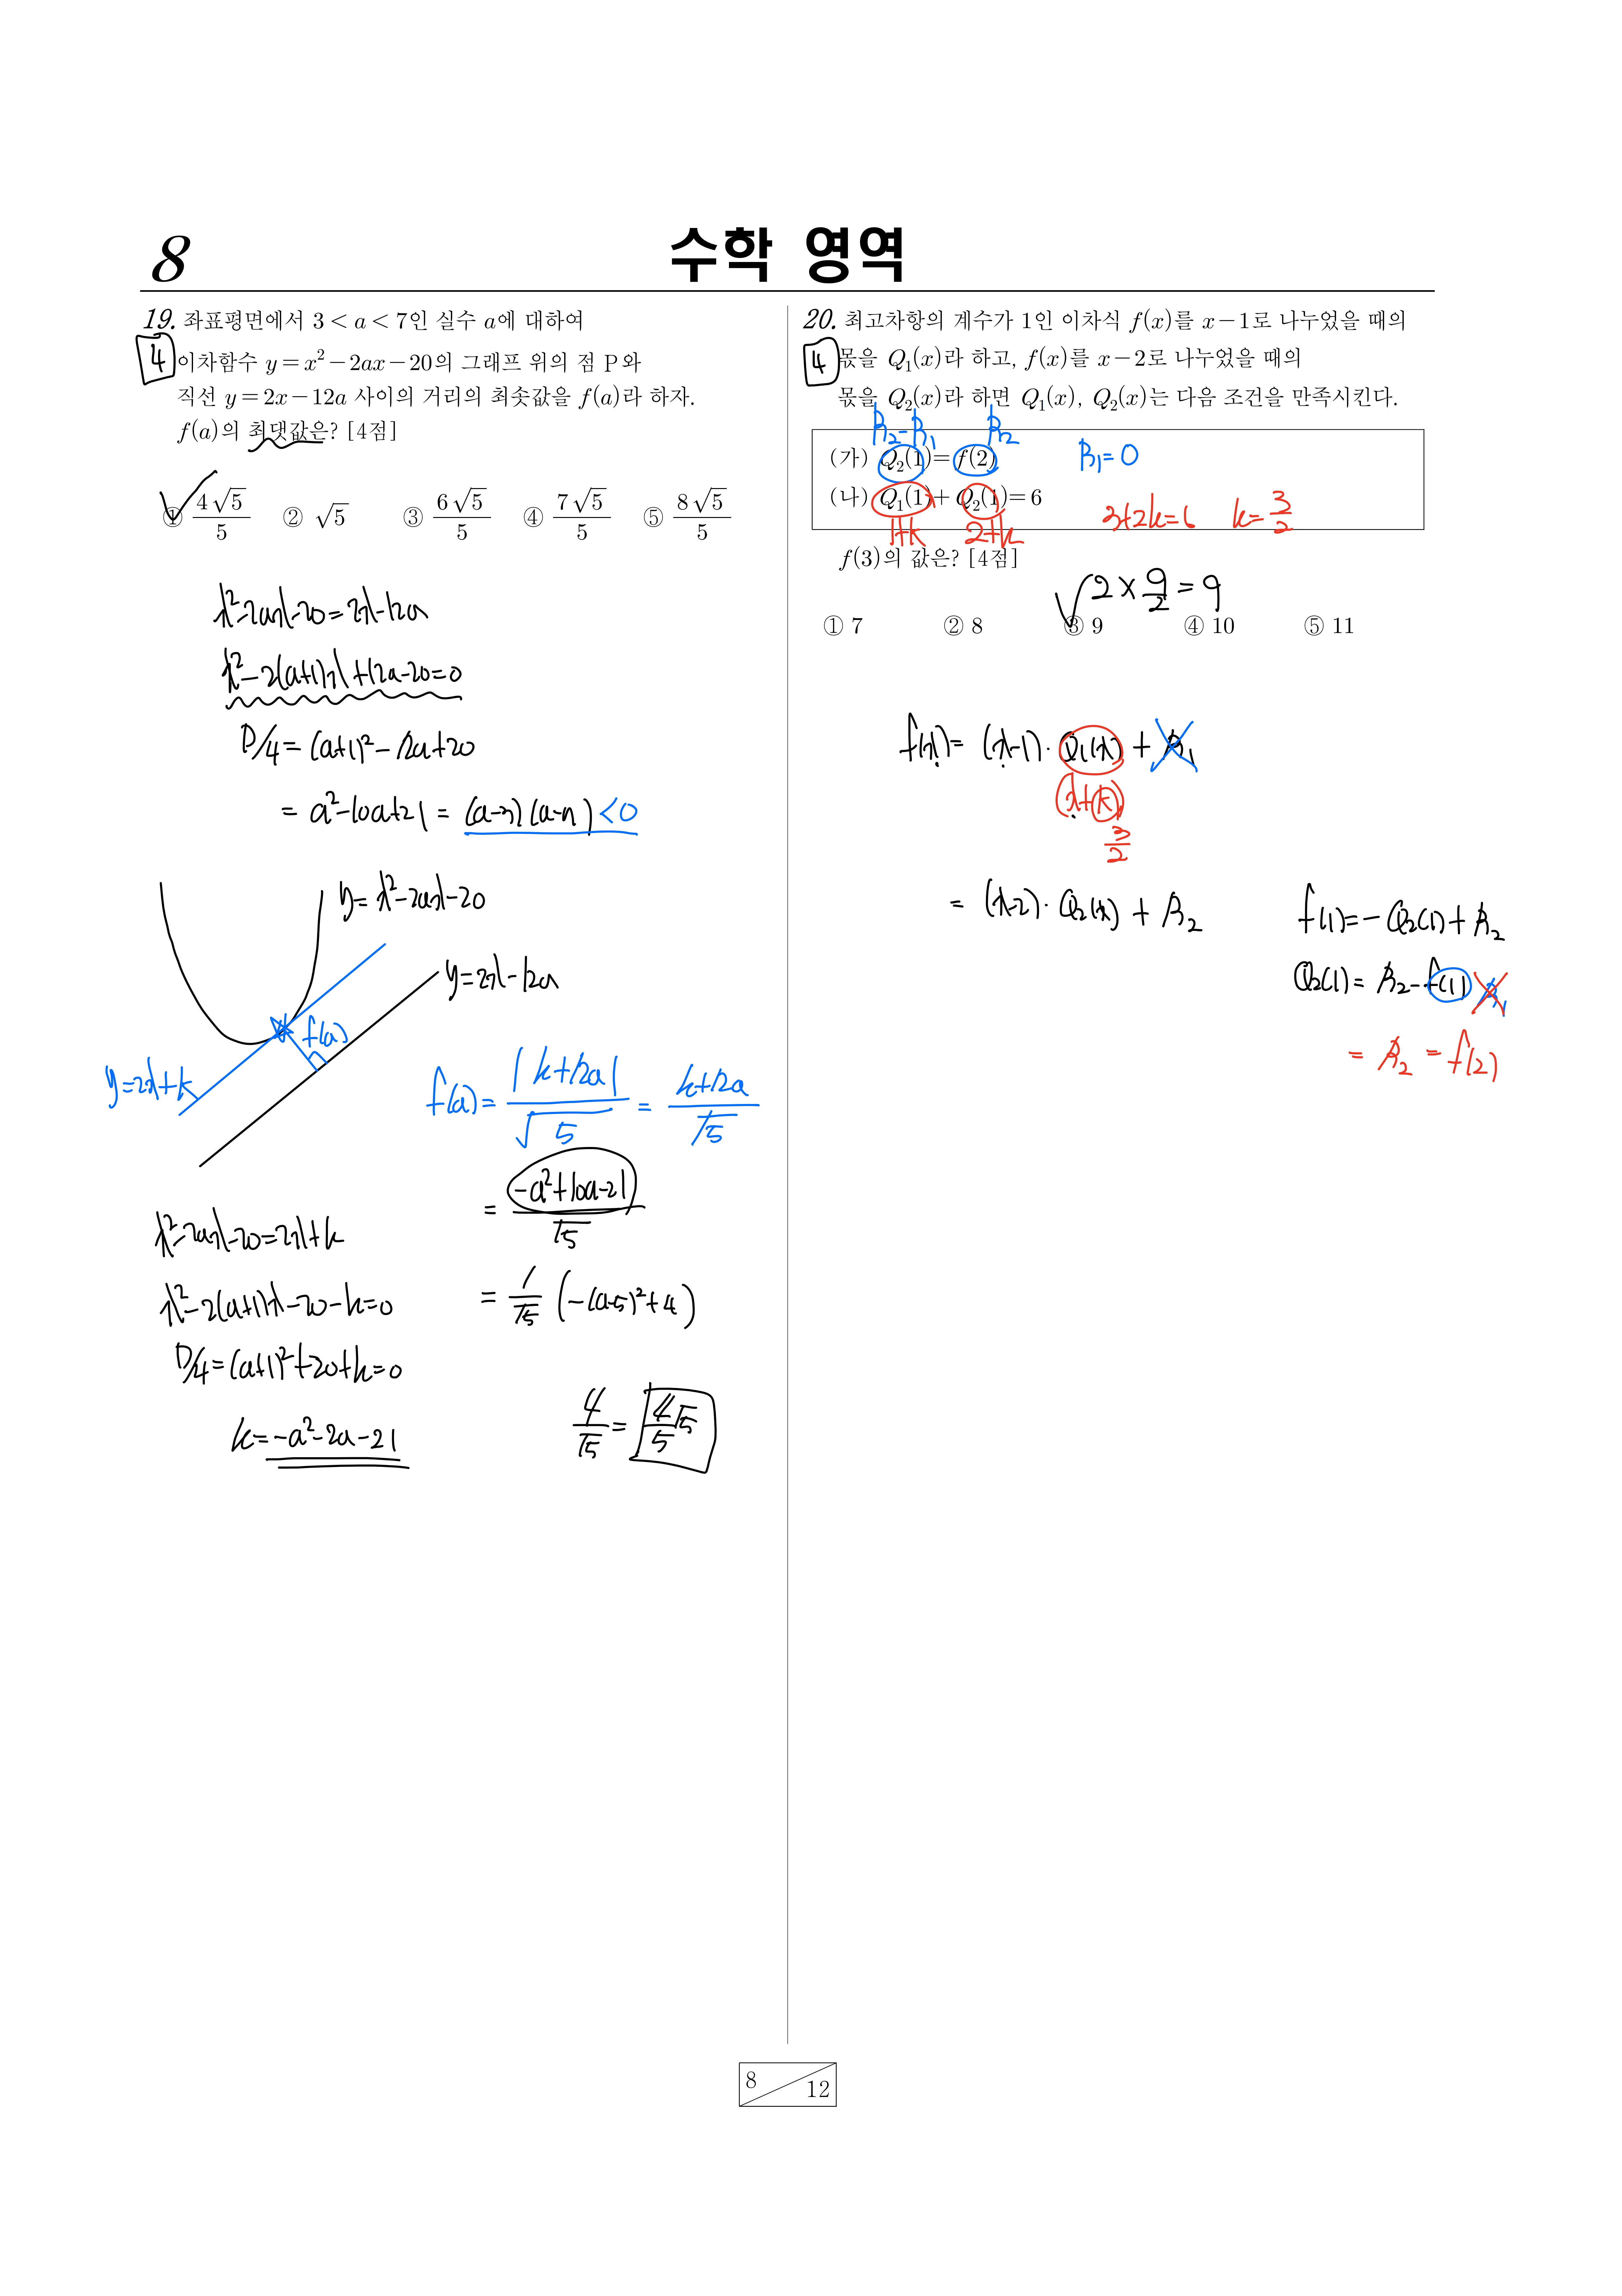 8
수학 영역
19. 좌표평면에서 3 < a < 7인 실수 a에 대하여
4
이차함수 y = x² − 2ax − 20의 그래프 위의 점 P와
직선 y = 2x − 12a 사이의 거리의 최솟값을 f(a)라 하자.
f(a)의 최댓값은? [4점]
① 4√5/5 ② √5 ③ 6√5/5 ④ 7√5/5 ⑤ 8√5/5
x²-2ax-20=2x-12a
x²-2(a+1)x+12a-20=0
D/4=(a+1)²-12a+20
= a²-10a+21 = (a-3)(a-7) <0
y= x²-2ax-20
y=2x-12a
f(a)
y=2x+k
f(a)= |k+12a|/√5 = k+12a/√5
= -a²+10a-21/√5
= 1/√5 (-(a-5)²+4)
4/√5 = 4/5√5
x²-2ax-20=2x+k
x²-2(a+1)x-20-k=0
D/4=(a+1)²+20+k=0
k=-a²-2a-21
20. 최고차항의 계수가 1인 이차식 f(x)를 x − 1로 나누었을 때의
4
몫을 Q₁(x)라 하고, f(x)를 x − 2로 나누었을 때의
몫을 Q₂(x)라 하면 Q₁(x), Q₂(x)는 다음 조건을 만족시킨다.
R₂-R₁ R₂
(가) Q₂(1) = f(2) R₁=0
(나) Q₁(1) + Q₂(1) = 6 3+2k=6 k=3/2
1+k 2+k
f(3)의 값은? [4점]
2×9/2=9
① 7 ② 8 ③ 9 ④ 10 ⑤ 11
f(x)= (x-1)·Q₁(x) + R₁
(x+k)
3/2
= (x-2)·Q₂(x) + R₂
f(1)=-Q₂(1)+R₂
Q₂(1)= R₂-f(1) R₁
= R₂ = f(2)
8 12